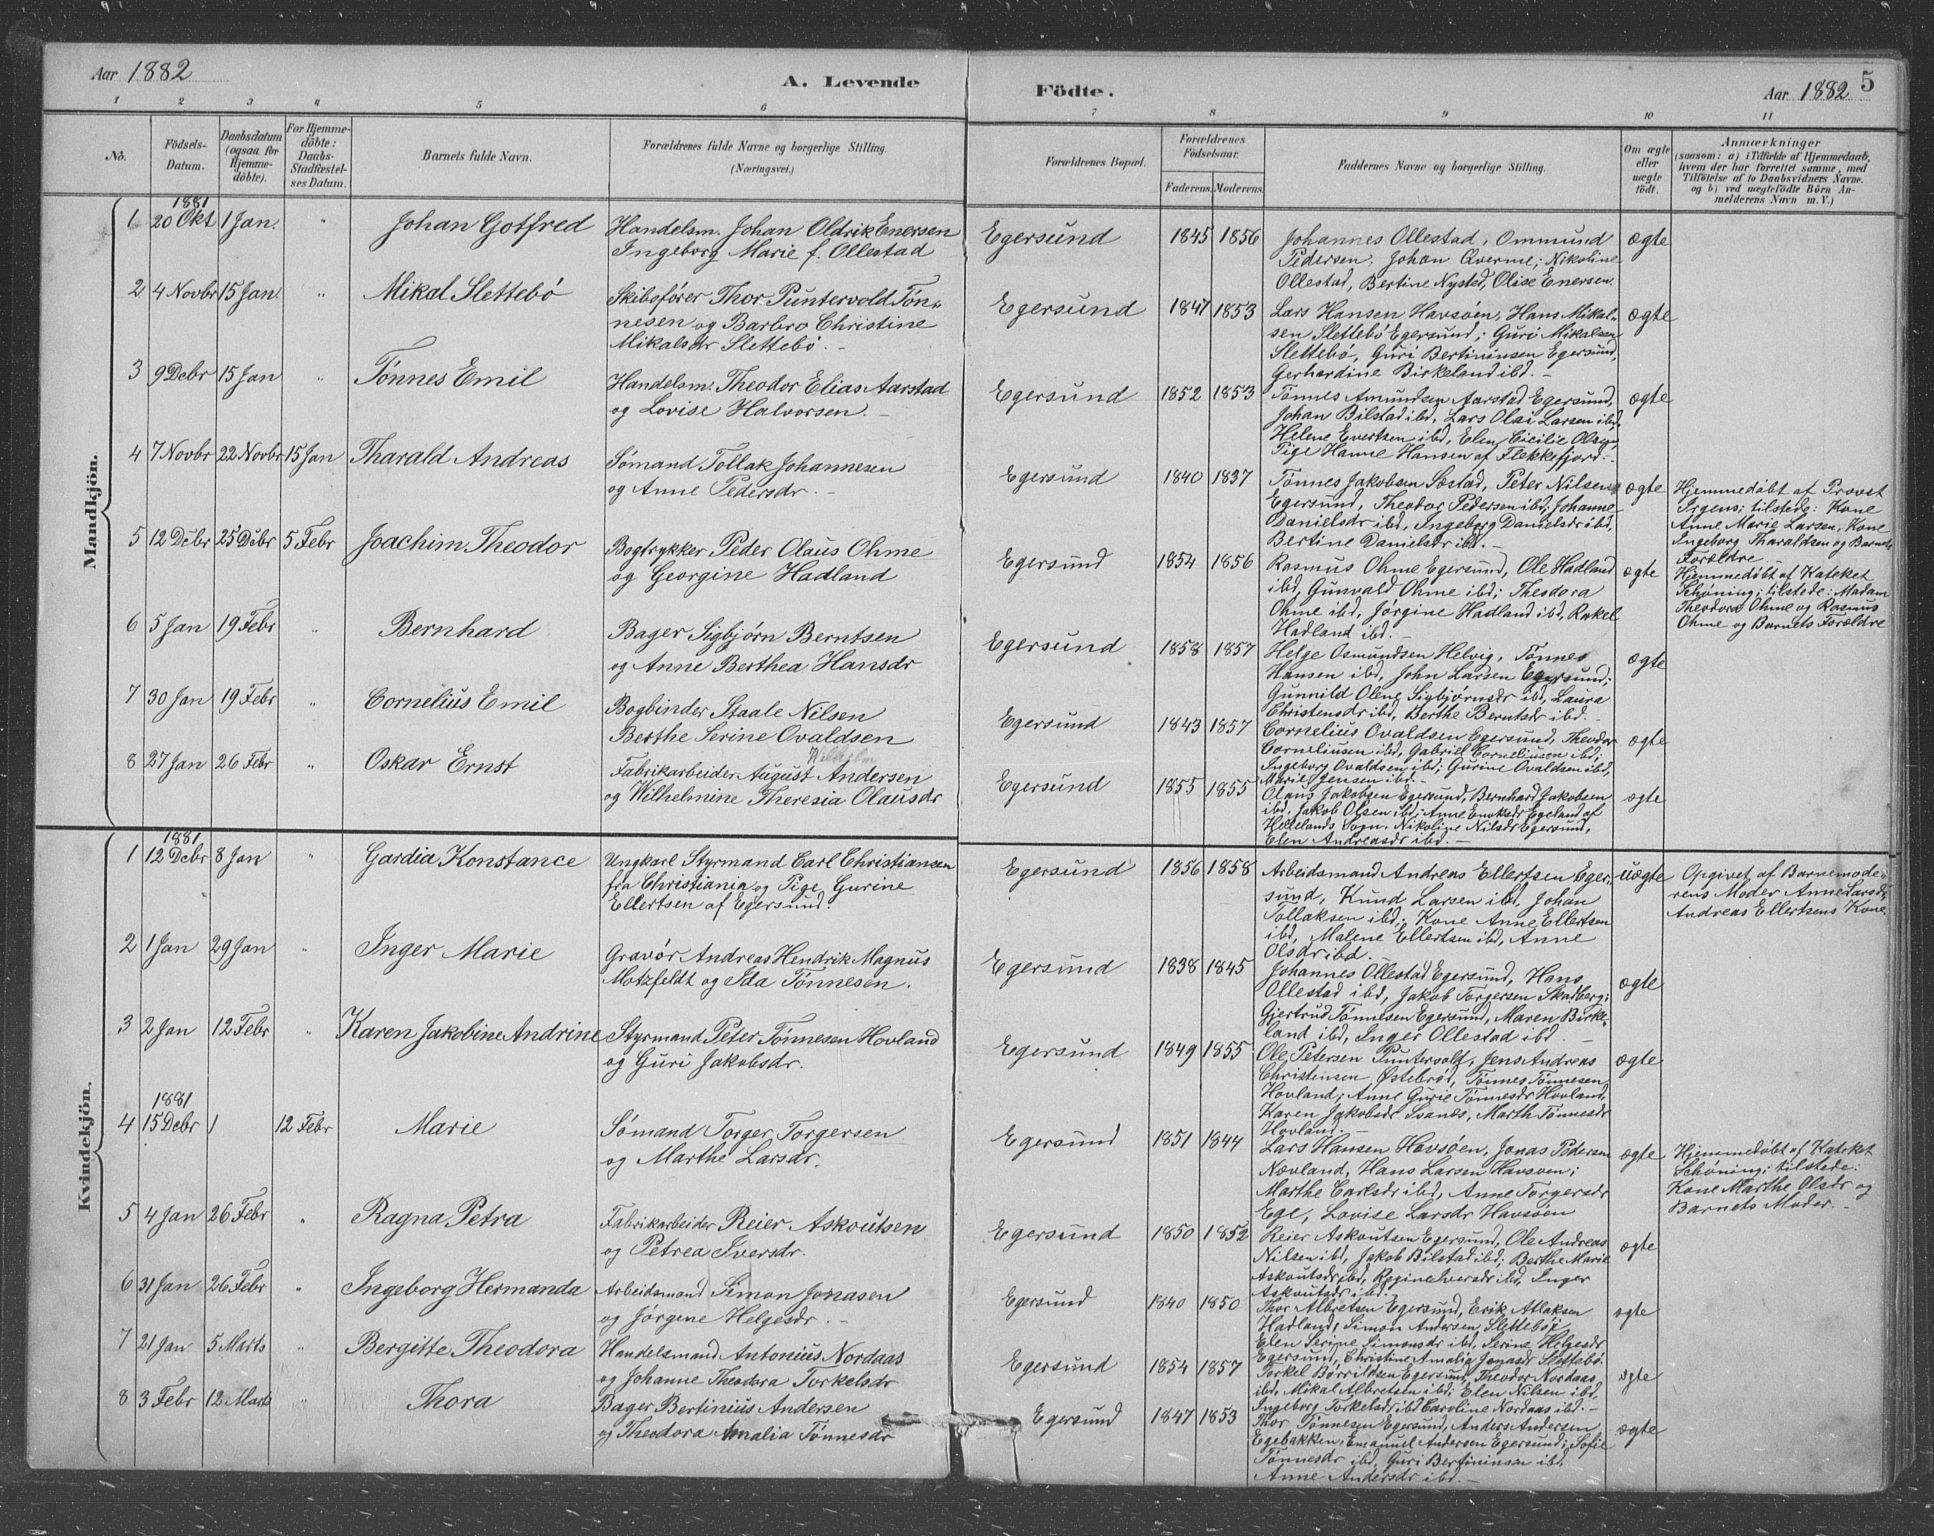 Aar 1882
A. Levende
Födte.
Aar 1882
5
1 2 3 4 5 6 7 8 9 10 11
No.
Födsels-
Datum.
Daabsdatum
(ogsaa for
Hjemme-
döbte).
For Hjemme-
döbte:
Daabs-
Stadfæstel-
ses Datum.
Barnets fulde Navn.
Forældrenes fulde Navne og borgerlige Stilling.
(Næringsvei.)
Forældrenes Bopæl.
Forældrenes
Födselsaar.
Faderens. Moderens.
Faddernes Navne og borgerlige Stilling.
Om ægte
eller
uægte
födt.
Anmærkninger
(saasom: a) i Tilfælde af Hjemmedaab,
hvem der har forrettet samme, med
Tilföielse af to Daabsvidners Navne,
og b) ved uægtefödte Börn An-
melderens Navn m. V.)
Mandkjön.
1881
1 20 Okt 1 Jan. " Johan Gotfred
Handelsm. Johan Oldrik Enersen
Ingeborg Marie f. Ollestad
Egersund 1845 1856
Johannes Ollestad, Ommund
Pedersen, Johan Qverme; Nikoline
Ollestad, Bertine Nysted, Olise Enersen.
ægte
2 4 Novbr 15 Jan. " Mikal Slettebö
Skibsfører Thor Puntervold Tøn-
nesen og Barbro Christine
Mikalsdr Slettebö. -
Egersund 1847 1853
Lars Hansen Havsøen, Hans Mikal-
sen Slettebö Egersund; Guri Mikalsen
Slettebö, Guri Bertininsen Egersund,
Gerhardine Birkeland ibd. -
ægte
3 9 Debr 15 Jan " Tønnes Emil
Handelsm. Theodor Elias Aarstad
og Lovise Halvorsen. -
Egersund 1852 1853
Tønnes Amundsen Aarstad Egersund,
Johan Bilstad ibd, Lars Olai Larsen ibd,
Helene Evertsen ibd, Elen Cicilie Olsen,
Pige Hanne Hansen af Flekkefjord. -
ægte
4 7 Novbr 22 Novbr 15 Jan Tharald Andreas
Sømand Tollak Johannesen
og Anne Pedersdr. -
Egersund 1840 1837
Tønnes Jakobsen Søstad, Peter Nilsen
Egersund, Theodor Pedersen ibd; Johanne
Danielsdr ibd, Ingeborg Danielsdr ibd,
Bertine Danielsdr ibd. -
ægte
Hjemmedøbt af Provst
Irgens; tilstede: Kone
Anne Marie Larsen, Kone
Ingeborg Tharaldsen og Barnets
Forældre
5 12 Debr 25 Debr 5 Febr Joachim Theodor
Bogtrykker Peder Olaus Ohme
og Georgine Hadland
Egersund 1854 1856
Rasmus Ohme Egersund, Ole Hadland
ibd, Gunvald Ohme ibd; Theodora
Ohme ibd, Jørgine Hadland ibd, Rakel
Hadland ibd. -
ægte
Hjemmedøbt af Kateket
Schøning; tilstede: Madam
Theodora Ohme og Rasmus
Ohme og Barnets Forældre
6 5 Jan 19 Febr " Bernhard
Bager Sigbjørn Berntsen
og Anne Berthea Hansdr
Egersund 1858 1857
Helge Osmundsen Helvig, Tønnes
Hansen ibd, John Larsen Egersund;
Gunnild Olene Sigbjørnsdr ibd, Laura
Christensdr ibd, Berthe Berntsdr ibd. -
ægte
7 30 Jan 19 Febr " Cornelius Emil
Bogbinder Staale Nilsen
Berthe Serine Ovaldsen
Egersund 1843 1857
Cornelius Ovaldsen Egersund, Theodor
Corneliusen ibd, Gabriel Corneliusen ibd,
Ingeborg Ovaldsen ibd; Gurine Ovaldsen ibd,
Marie Jensen ibd. -
ægte
8 27 Jan 26 Febr " Oskar Ernst
Wilhelm
Fabrikarbeider August Andersen
og Wilhelmine Theresia Olausdr
Egersund 1855 1855
Olaus Jakobsen Egersund, Bernhard Jakobsen
ibd, Jakob Olsen ibd; Anne Enoksdr Egeland af
Hellelands Sogn, Nikoline Nilsdr Egersund,
Elen Andreasdr ibd. -
ægte
Kvindekjön.
1881
1 12 Debr 8 Jan " Gardia Konstance
Ungkarl Styrmand Carl Christiansen
fra Christiania og Pige Gurine
Ellertsen af Egersund.
Egersund 1856 1858
Arbeidsmand Andreas Ellertsen Eger-
sund, Knud Larsen ibd, Johan
Tollaksen ibd; Kone Anne Ellertsen
ibd, Malene Ellertsen ibd, Anne
Olsdr ibd.
uægte
Opgivet af Barnemode-
rens Moder Anne Larsdr,
Andreas Ellertsens Kone
2 1 Jan 29 Jan " Inger Marie
Gravør Andreas Hendrik Magnus
Motzfeldt og Ida Tønnesen.
Egersund 1838 1845
Johannes Ollestad Egersund, Hans
Ollestad ibd, Jakob Torgersen Skadberg;
Gjertrud Tønnesen Egersund, Maren Birke-
land ibd, Inger Ollestad ibd. -
ægte
3 2 Jan 12 Febr " Karen Jakobine Andrine
Styrmand Peter Tønnesen Hovland
og Guri Jakobsdr.
Egersund 1849 1855
Ole Petersen Puntervold, Jens Andreas
Christensen Østebrøt, Tønnes Tønnesen
Hovland; Anne Gurie Tønnesdr Hovland,
Karen Jakobsdr Svanes, Marth Tønnesdr
Hovland. -
ægte
1881
4 15 Debr 1 12 Febr Marie
Sømand Torger Torgersen
og Marthe Larsdr.
Egersund 1851 1844
Lars Hansen Havsøen, Jonas Pedersen
Nævland, Hans Larsen Havsøen;
Marthe Carlsdr ibd, Anne Torgersdr
Ege, Lovise Larsdr Havsøen
ægte
Hjemmedøbt af Kateket
Schøning; tilstede:
Kone Marthe Olsdr og
Barnets Moder. -
5 4 Jan 26 Febr " Ragna Petra
Fabrikarbeider Reier Askoutsen
og Petrea Iversdr.
Egersund 1850 1852
Reier Askoutsen Egersund, Ole Andreas
Nilsen ibd, Jakob Bilstad ibd; Berthe Marie
Askoutsdr ibd, Regine Iversdr ibd, Inger
Askoutsdr ibd.
ægte
6 31 Jan 26 Febr " Ingeborg Hermanda
Arbeidsmand Simon Jonasen
og Jørgene Helgesdr. -
Egersund 1840 1850
Thor Albretsen Egersund, Erik Atlaksen
Hadland, Simon Andersen Slettebö;
Elen Serine Simonsdr ibd, Serine Helgesdr
Egersund, Christine Amalia Jonasdr Slettebö.
ægte
7 21 Jan 5 Marts " Bergitte Theodora
Handelsmand Antonius Nordaas
og Johanne Theodora Torkelsdr
Egersund 1854 1857
Torkel Børrildsen Egersund, Theodor Nordaas
ibd, Mikal Albretsen ibd; Elen Nilsen ibd,
Ingeborg Torkelsdr ibd Caroline Nordaas ibd. -
ægte
8 3 Febr 12 Marts " Thora
Bager Bertinius Andersen
og Theodora Amalia Tønnesdr
Egersund 1847 1853
Thor Tønnesen Egersund, Anders Andersen
Egebakken, Emanuel Andersen Egersund; Sofie
Tønnesdr ibd, Guri Bertininsen ibd,
Anne Andersdr ibd. -
ægte